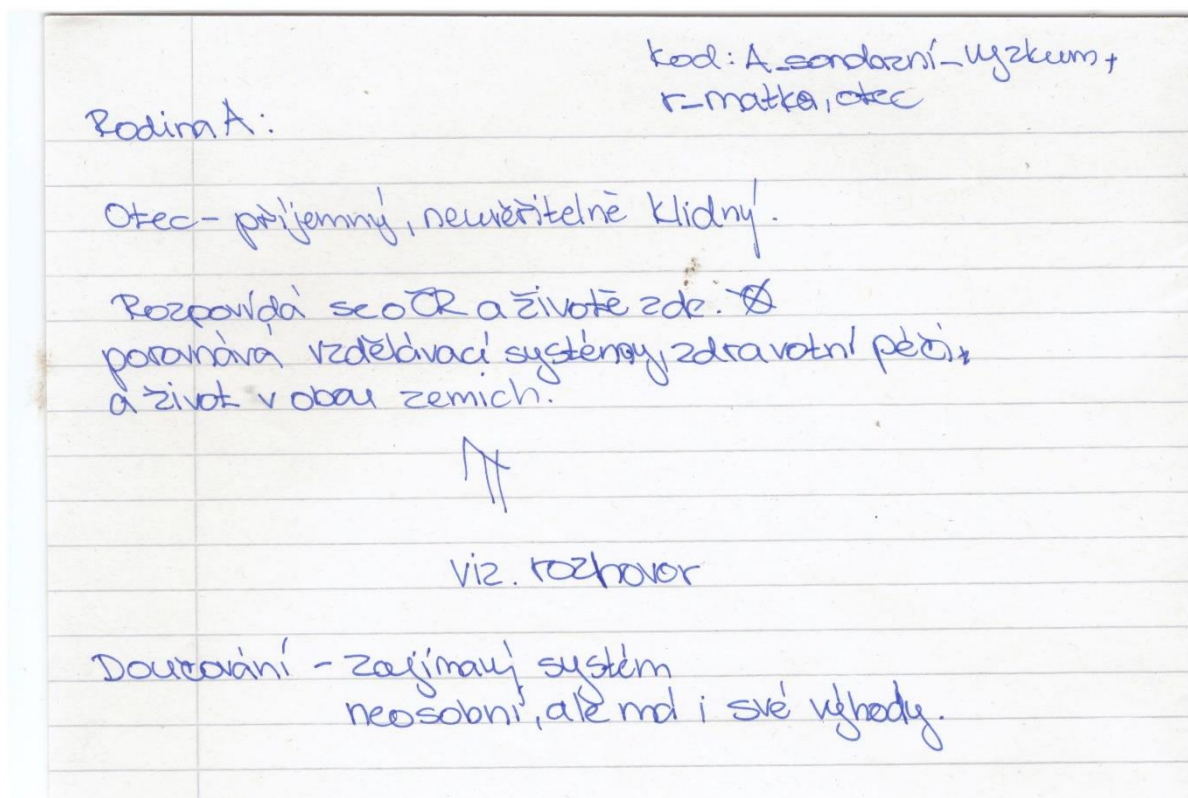 kod: A_sondazní_výzkum,
r_matka, otec
Rodina A:
Otec - příjemný, neuvěřitelně klidný.
Rozpovídá se o ČR a životě zde.
porovnává vzdělávací systémy, zdravotní péči,
a život v obou zemích.
viz. rozhovor
Doučování - zajímavý systém
neosobní, ale má i své výhody.